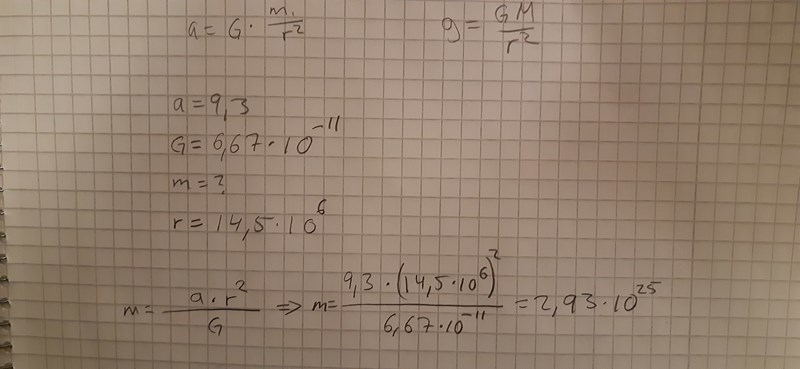 a = G · m₁/r² g = GM/r²
a = 9,3
G = 6,67 · 10⁻¹¹
m = ?
r = 14,5 · 10⁶
m = a · r²/G ⇒ m = 9,3 · (14,5 · 10⁶)²/6,67 · 10⁻¹¹ = 2,93 · 10²⁵